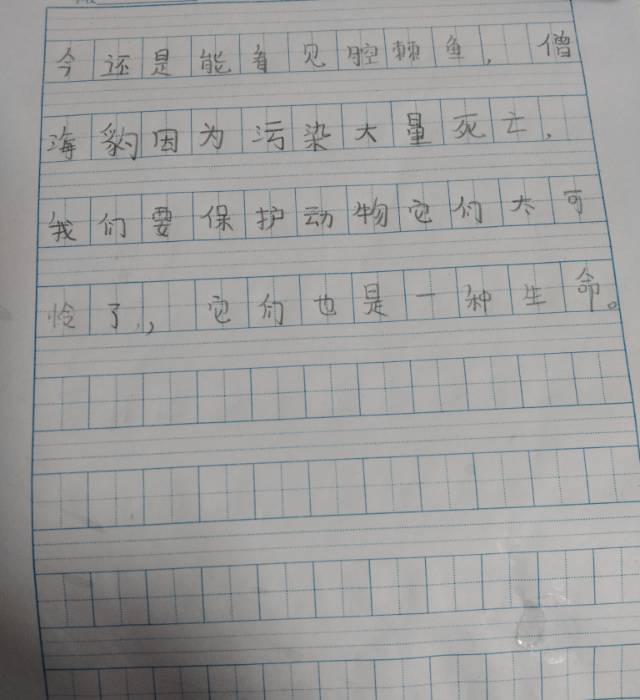 今还是能看见腔棘鱼，僧
海豹因为污染大量死亡，
我们要保护动物它们太可
怜了，它们也是一种生命。